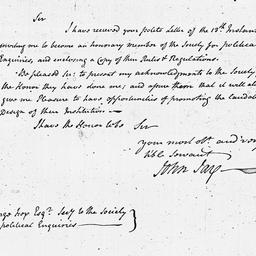 Sir
I have received your polite Letter of the 18th Instant
me to become an honorary member of the Society for political
Enquiries, and enclosing a Copy of their Rules & Regulations.
Be pleased Sir; to present my acknowledgments to the Society
the Honor they have done me; and assure them that it will al
give me Pleasure to have opportunities of promoting the laudab
Design of their Institution—
I have the Honor to be Sir
your most obt. and
hble Servant
John Jay
Esqr. Secy to the Society
political Enquiries